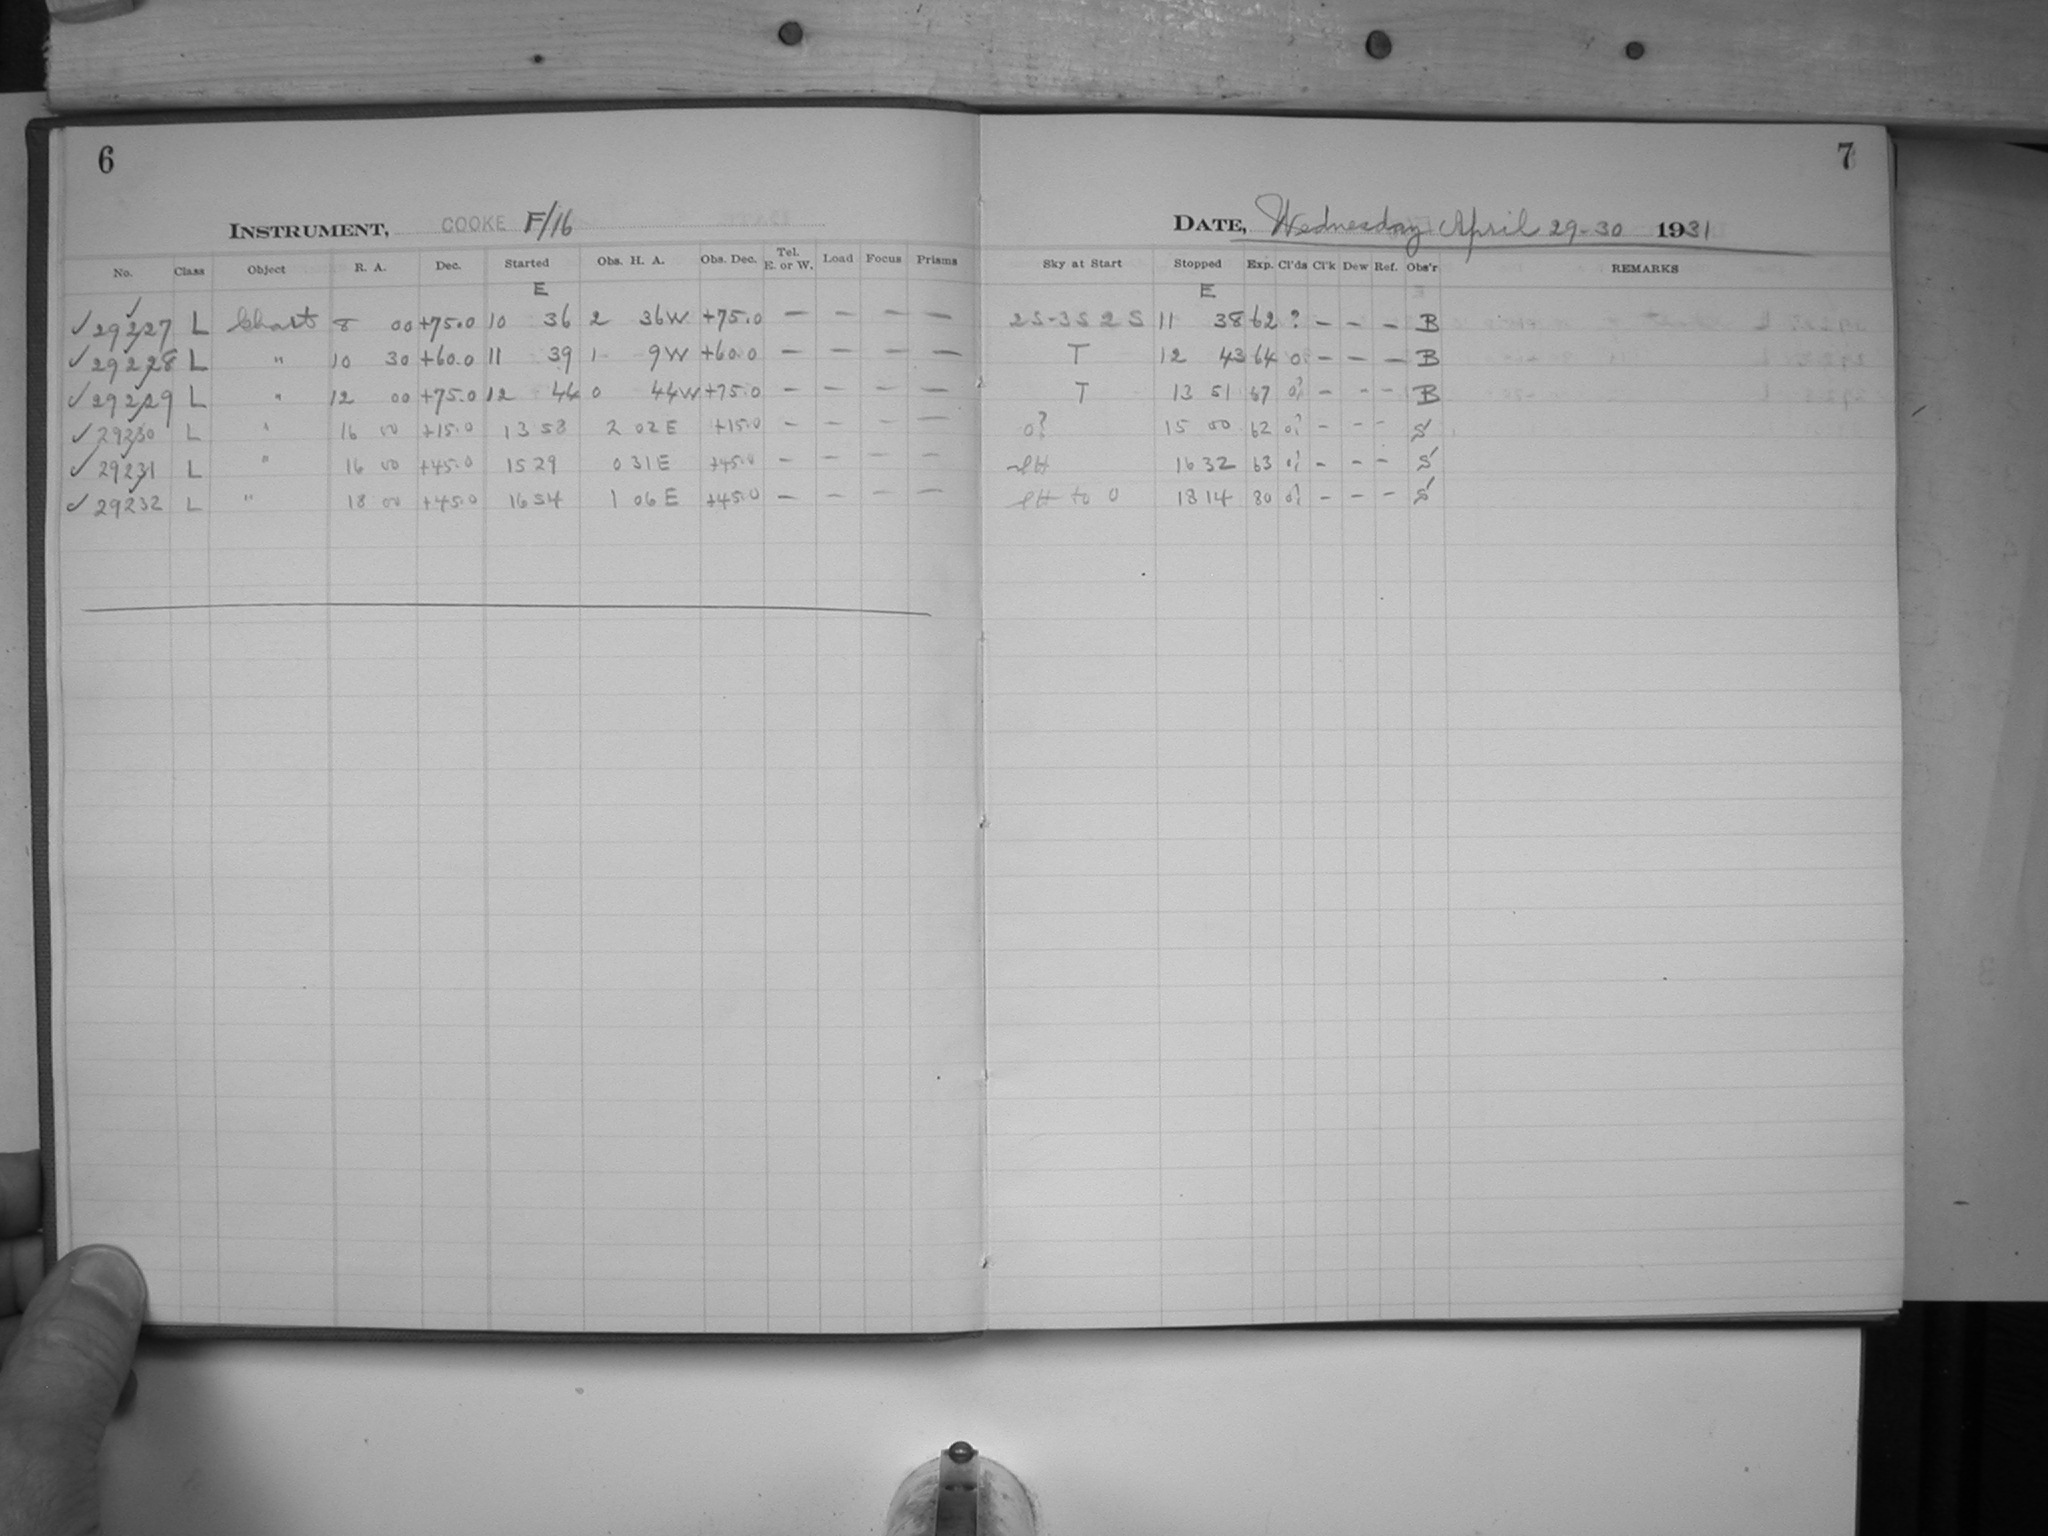 6
INSTRUMENT, COOKE F/16
No. Class Object R. A. Dec. Started Obs. H. A. Obs. Dec. Tel. E. or W. Load Focus Prisms
E
✓ 29227 L Chart 8 00 +75.0 10 36 2 36W +75.0 — — — —
✓ 29228 L " 10 30 +60.0 11 39 1 9W +60.0 — — — —
✓ 29229 L " 12 00 +75.0 12 44 0 44W +75.0 — — — —
✓ 29230 L " 16 00 +15.0 13 58 2 02E +15.0 — — — —
✓ 29231 L " 16 00 +45.0 15 29 0 31E +45.0 — — — —
✓ 29232 L " 18 00 +45.0 16 54 1 06E +45.0 — — — —
7
DATE, Wednesday April 29-30 1931
Sky at Start Stopped Exp. Cl'ds Cl'k Dew Ref. Obs'r REMARKS
E
2S-3S 2S 11 38 62 ? — — — B
T 12 43 64 0? — — — B
T 13 51 67 0? — — — B
0? 15 00 62 0? — — — S
16 32 63 0? — — — S
to 0 18 14 80 0? — — — S